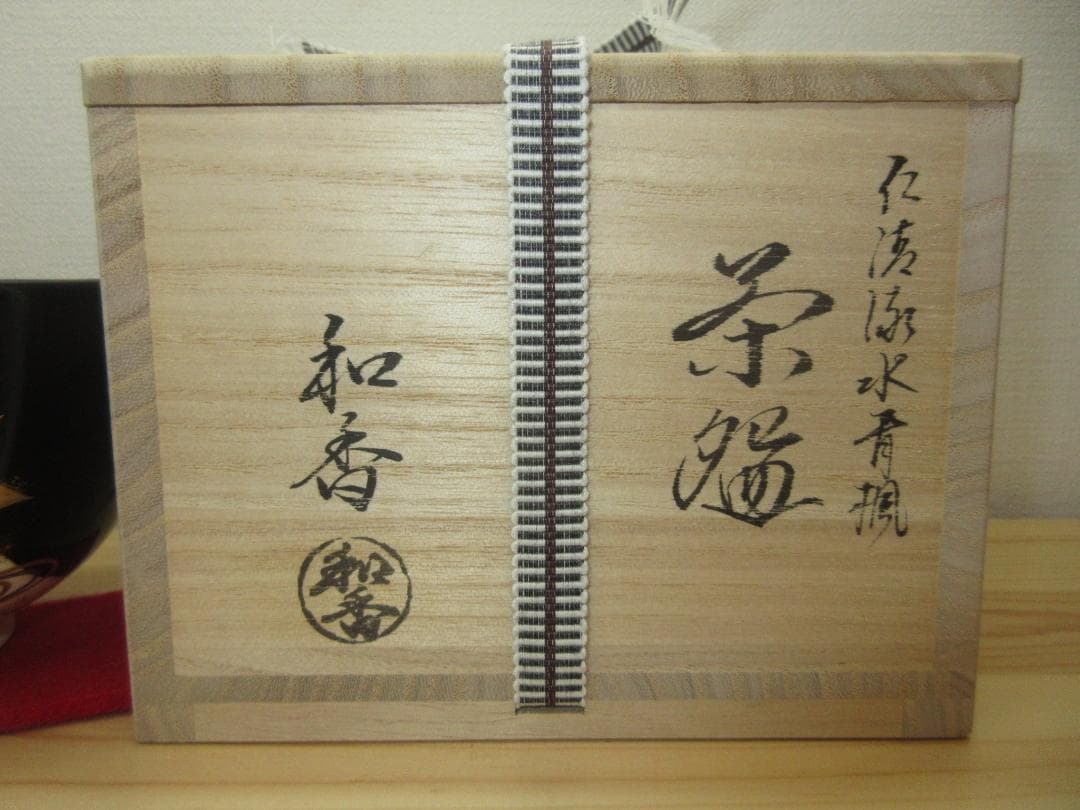 仁清流水青楓
茶碗
和香
和香